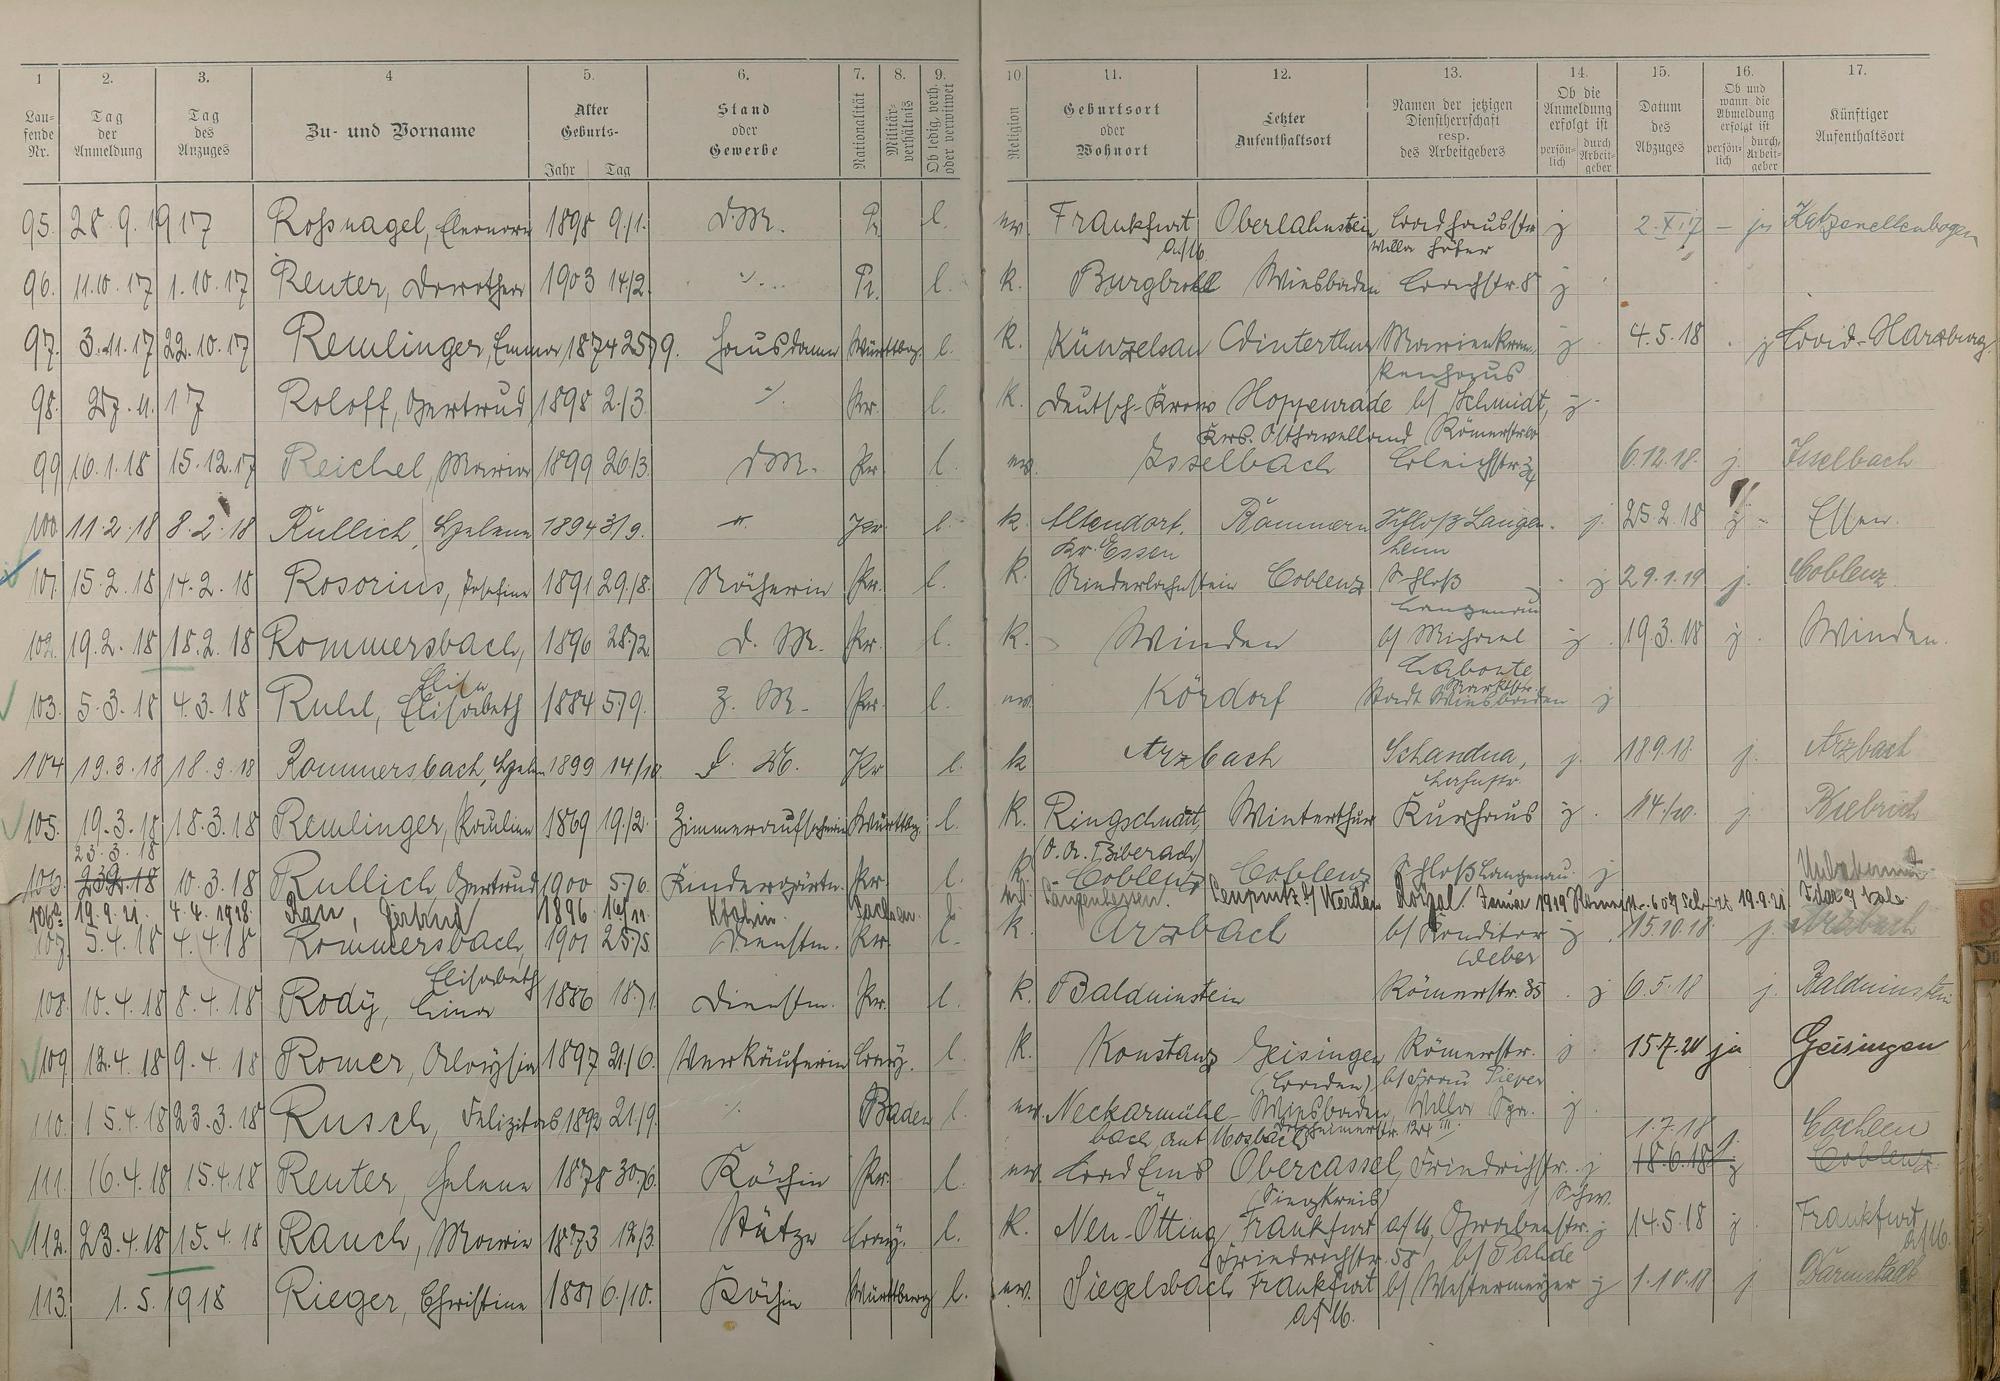 1 2. 3. 4 5. 6. 7. 8. 9. 10 11. 12. 13. 14. 15. 16. 17.
Lau-fende Nr. Tag der Anmeldung Tag des Anzuges Zu- und Vorname Alter Geburts- Jahr Tag Stand oder Gewerbe Nationalität Militär-verhältnis Ob ledig, verh. oder verwitwet Religion Geburtsort oder Wohnort Letzter Aufenthaltsort Namen der jetzigen Dienstherrschaft resp. des Arbeitgebers Ob die Anmeldung erfolgt ist persön-lich durch Arbeit-geber Datum des Abzuges Ob und wann die Abmeldung erfolgt ist persön-lich durch Arbeit-geber Künftiger Aufenthaltsort
95. 28. 9. 1917 Roßnagel, Eleonore 1898 9./1. D.M. Pr. l. ev. Frankfurt a/M. Oberlahnstein Badhausstr. Villa Höfer j 2. XI 17 – ja Katzenellenbogen
96. 11.10.17 1.10.17 Reuter, Dorothea 1903 14/2. Pr. l. k. Burgbrohl Wiesbaden 8 j
97. 3.11.17 22.10.17 Remlinger, Emma 1874 25/9. Hausdame Württbg. l. k. Künzelsau Winterthur Marienkran-kenhaus j 4.5.18 j Bad-Harzburg
98. 27. 11. 17 Roloff, Gertrud 1898 2./3. Pr. l. k. Deutsch-Krone Hoppenrade Krs. Osthavelland b/ Schmidt, Römerstr. j
99 16.1.18 15.12.17 Reichel, Maria 1899 26/3. DM. Pr. l. ev. Isselbach Bleichstr. 6.12.18. j. Isselbach
100. 11.2.18 8.2.18 Rullich, Helene 1894 3/9. Pr l. k. Altendorf. Kr. Essen Schloß Langen. j. 25.2.18 j Essen.
101. 15.2.18 14.2.18 Rosorius, Josefine 1891 29./8. Näherin Pr. l. k. Niederlahnstein Coblenz Schloß Langenau j 29.1.19 j. Coblenz
102. 19.2.18 18.2.18 Rommersbach, Elisa 1896 28/2. D. M. Pr. l. k. Winden b/ Michael Labonte Marktstr. j 19.3.18 j. Winden.
103. 5.3.18 4.3.18 Ruhl, Elisabeth 1884 5/9. Z. M. Pr. l. ev. Kördorf Stadt Wiesbaden j
104 19.3.18 18.3.18 Rommersbach, Helen 1899 14/10 D. M. Pr l. k Arzbach Schandua, Lahnstr. j. 18.9.18 j. Arzbach
105. 19.3.18 18.3.18 Remlinger, Pauline 1869 19./2. Zimmeraufseherin Württbg. l. k. Ringschnait, (O. A. Biberach) Winterthur Kurhaus j. 14./10. j. Biebrich
106. 23.3.18 10.3.18 Rullich, Gertrud 1900 5./6. Kindergärtn. Pr. l. k. Coblenz Coblenz Schloß Langenau. j Unbekannt
106a 19.9.21. 4.4.1918. Rau, Gertrud 1896 Köchin. Sachsen. l. Langenhessen. Leupnitz b/ Werdau Januar 1919 19.9.21
107. 5.4.18 4.4.18 Rommersbach, Elisabeth 1901 25/5. Dienstm. Pr. l. k. Arzbach b/ Konditor Weber j 15.10.18. j. Arzbach
108. 10.4.18 8.4.18 Rody, Lina 1886 18./1. Dienstm. Pr. l. k. Balduinstein Römerstr. 35 j 6.5.18 j. Balduinstein
109 12.4.18 9.4.18 Romer, Aloysia 1897 21/6. Verkäuferin Bay. l. k. Konstanz Geisingen (Baden) Römerstr. b/ Frau Pieper j. 15.7.20 ja Geisingen
110. 15.4.18 23.3.18 Rusch, Felizitas 1892 21./9. Baden l. ev. Neckarmühl-bach amt Mosbach Wiesbaden, Villa Spa. j.
111. 16.4.18 15.4.18 Reuter, Helene 1878 30/6. Köchin Pr. l. ev. Bad Ems Obercassel, (Siegkreis) Friedrichstr. j 18.6.18 1.7.18 j. Coblenz Cochem
112. 23.4.18 15.4.18 Rauch, Maria 1873 12/3. Stütze Bay. l. k. Neu-Ötting Frankfurt a/M, Friedrichstr. 58 Grabenstr. b/ Schw. j 14.5.18 j Frankfurt a/M.
113. 1.5.1918 Rieger, Christine 1881 6./10. Köchin Württberg l. ev. Siegelsbach Frankfurt a/M. b/ Westermeyer j 1.10.18 j Darmstadt